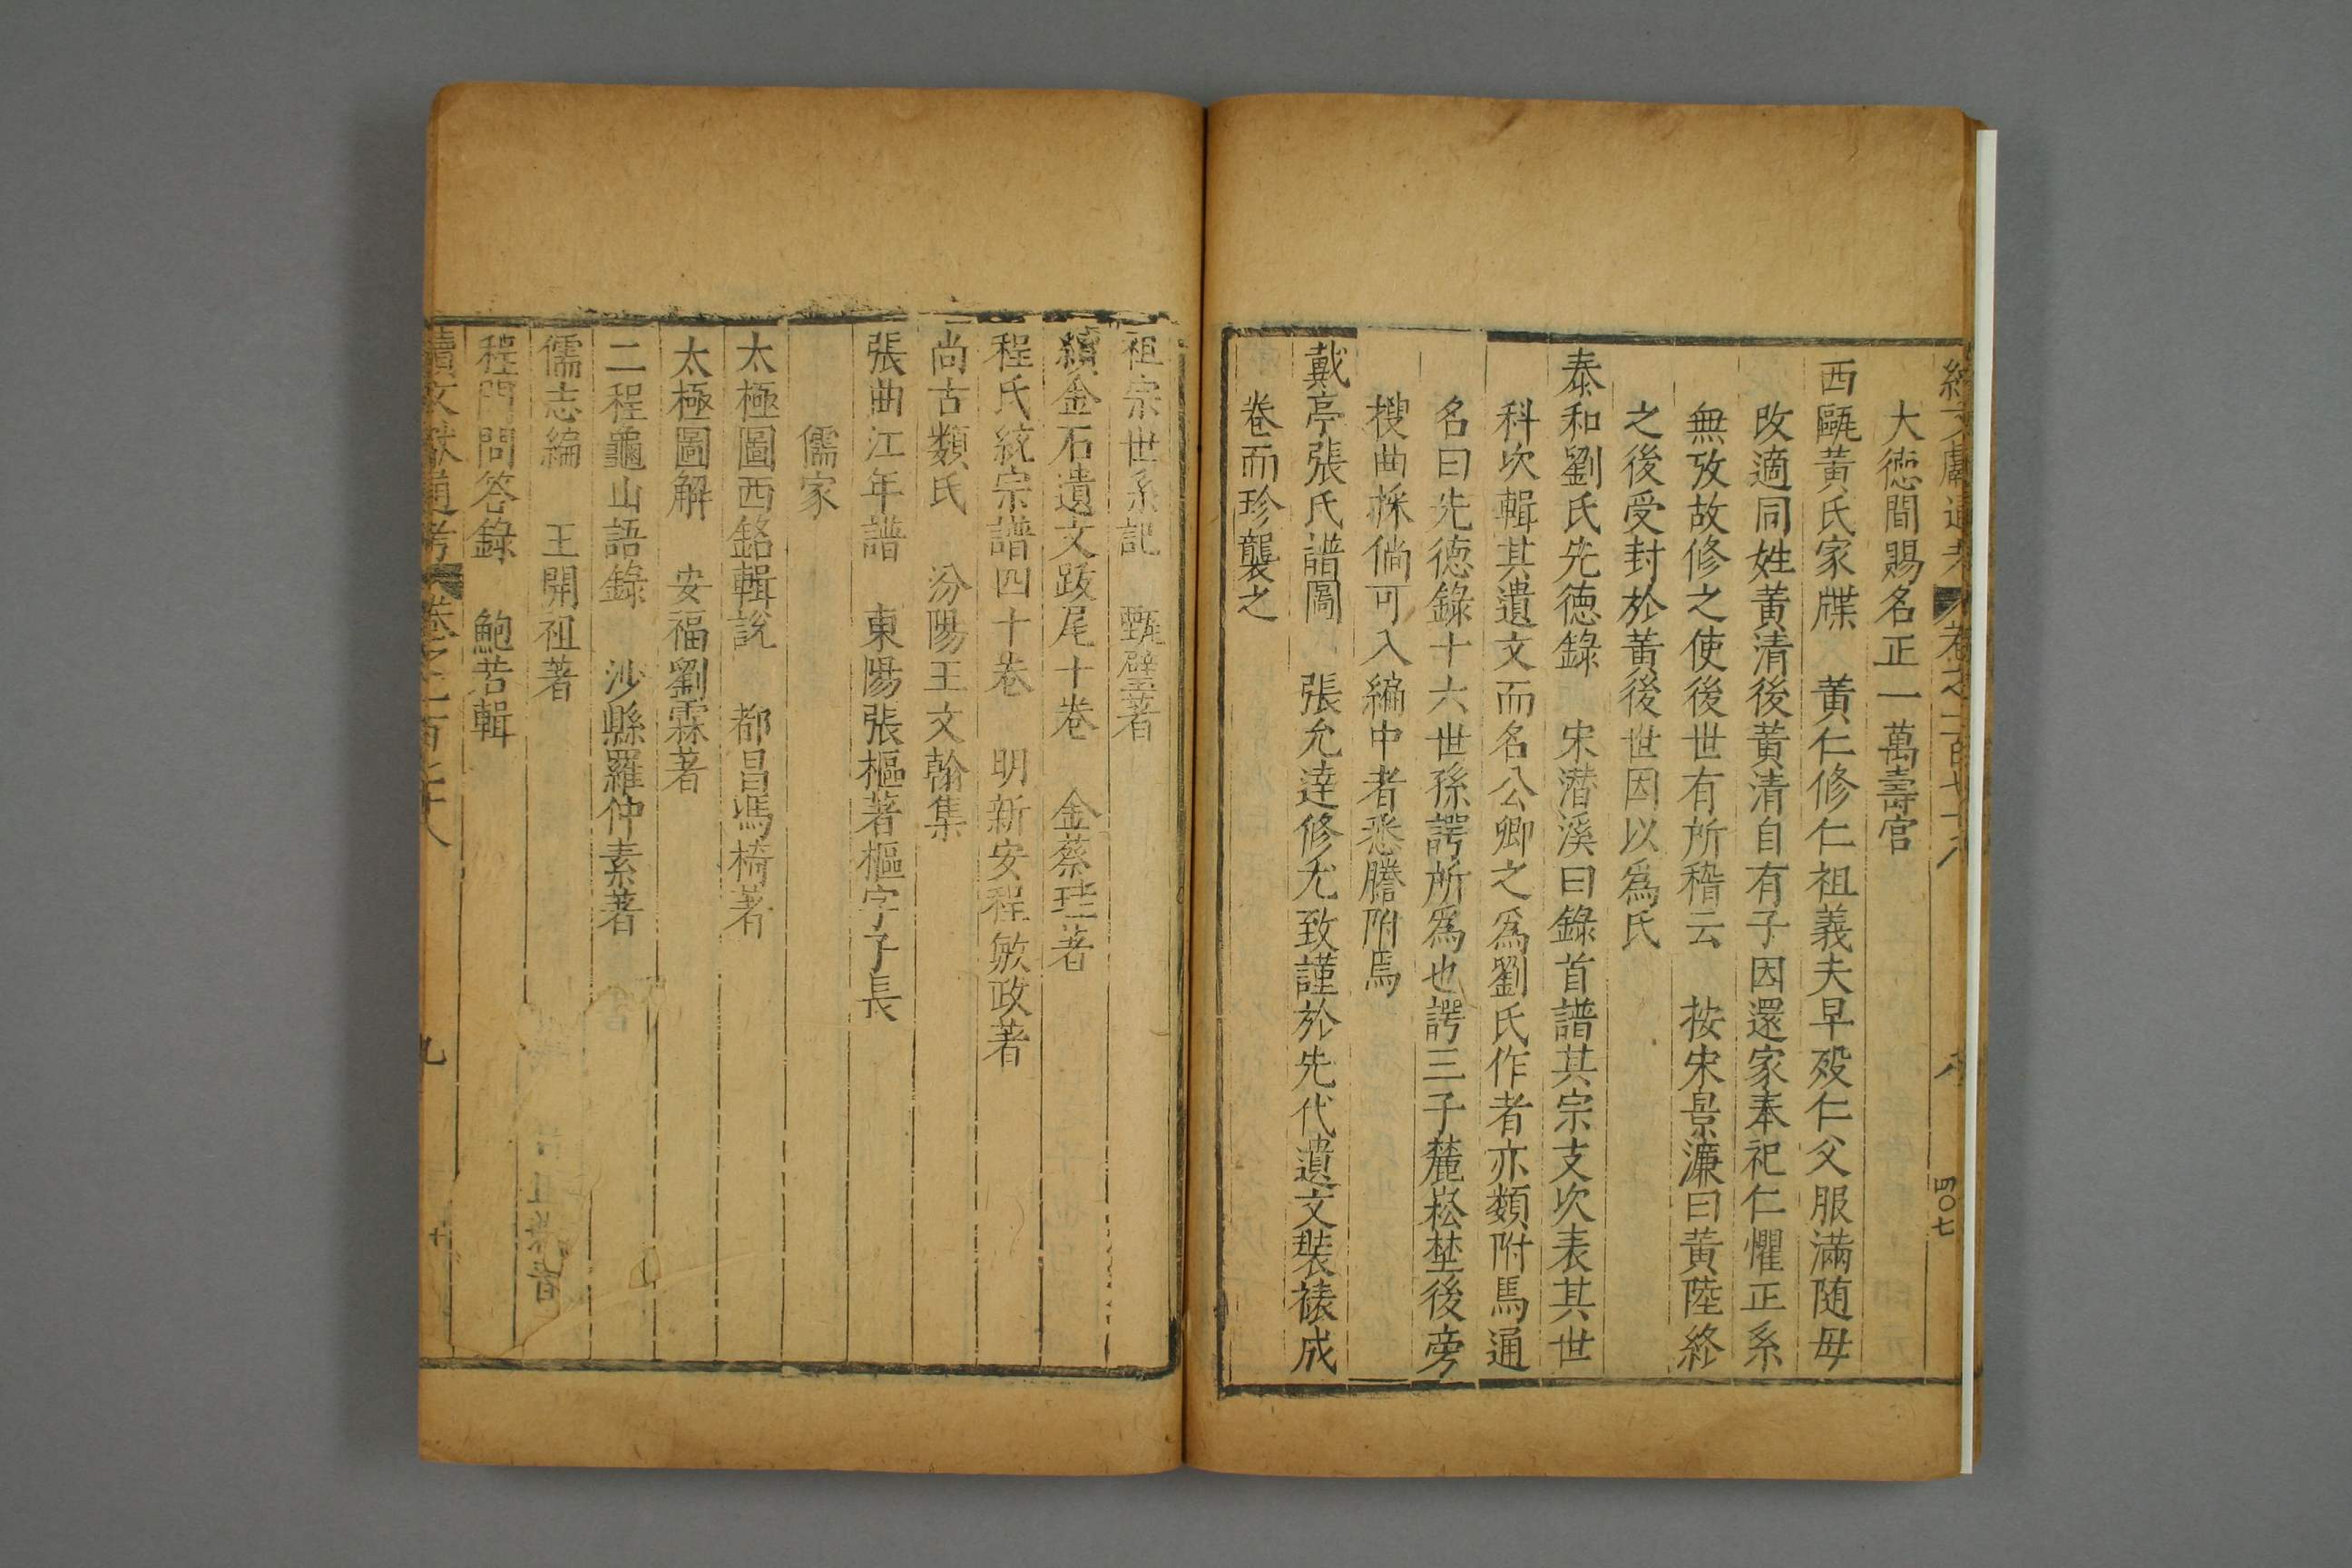 續文獻通考 卷之一百七十八 八 四〇七
大德間賜名正一萬壽宮
西甌黃氏家牒 黃仁修仁祖義夫早歿仁父服滿随母
改適同姓黃清後黃清自有子因還家奉祀仁懼正系
無攷故修之使後世有所稽云 按宋景濂曰黃陸終
之後受封於黃後世因以爲氏
泰和劉氏先德錄 宋潛溪曰錄首譜其宗支次表其世
科次輯其遺文而名公卿之爲劉氏作者亦類附焉通
名曰先德錄十六世孫諤所爲也諤三子麓崧埜後旁
搜曲採倘可入編中者悉謄附焉
戴亭張氏譜圖 張允達修尤致謹於先代遺文裝裱成
卷而珍襲之
祖宗世系記 甄璧著
續金石遺文跋尾十卷 金蔡珪著
程氏統宗譜四十卷 明新安程敏政著
尚古類氏 汾陽王文翰集
張曲江年譜 東陽張樞著樞字子長
儒家
太極圖西銘輯說 都昌馮椅著
太極圖解 安福劉霖著
二程龜山語錄 沙縣羅仲素著
儒志編 王開祖著
程門問答錄 鮑若輯
續文獻通考 卷之一百七十八 九